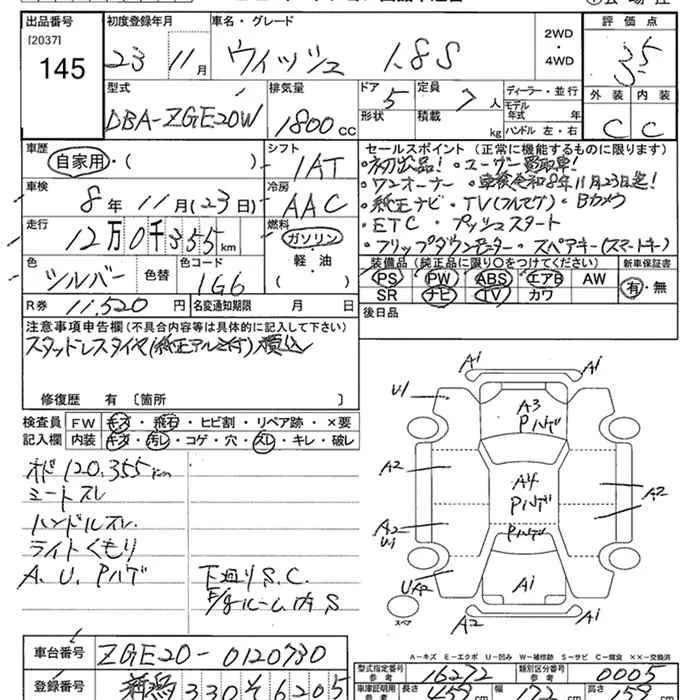 出品番号 初度登録年月 車名・グレード 評価点
[2037]
145
23 11月 ウィッシュ 1.8S 2WD・4WD 3.5
型式 排気量 ドア 定員 ディーラー・並行 外装 内装
DBA-ZGE20W 1800cc 5 7人 モデル年式 年
形状 積載 kg ハンドル 左・右 C C
車歴 シフト セールスポイント(正常に機能するものに限ります)
自家用・( ) 1AT ・初出品!・ユーザー買取車!
車検 冷房 ・ワンオーナー・車検令和8年11月23日迄!
8年11月(23日) AAC ・純正ナビ・TV(フルセグ)・Bカメラ
走行 燃料 ・ETC・プッシュスタート
12万0千355km ガソリン・軽油 ・フリップダウンモニター・スペアキー(スマートキー)
( ) 装備品(純正品に限り〇をつけてください) 新車保証書
色 色替 色コード PS PW ABS エアB AW
シルバー 1G6 SR ナビ TV カワ 有・無
R券 11,520円 名変通知期限 月 日 後日品
注意事項申告欄(不具合内容等は具体的に記入して下さい)
スタッドレスタイヤ(純正アルミ付)積込
修復歴 有〔箇所 〕
検査員 FW キズ・飛石・ヒビ割・リペア跡・×要
記入欄 内装 キズ・汚レ・コゲ・穴・スレ・キレ・破レ
オド120,355km
シートスレ
ハンドルスレ
ライトくもり
A、U、Pハゲ 下廻りS.C.
E/gルーム内S
A1 A1
U1 A3
Pハゲ
A2 A4 A2
Pハゲ
A2 Pハゲ
U1
UA2 A1
スペア A2 A1
A-キズ E-エクボ U-凹み W-補修跡 S-サビ C-腐食 ××-交換済
車台番号 ZGE20-0120730
型式指定番号 参考 16272 類別区分番号 参考 0005
登録番号 330 そ 6205
車庫証明用 参考 長さ cm 幅 cm 高さ cm